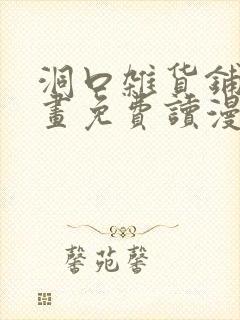 洞口雜貨鋪
畫免費讀漫
馨苑馨